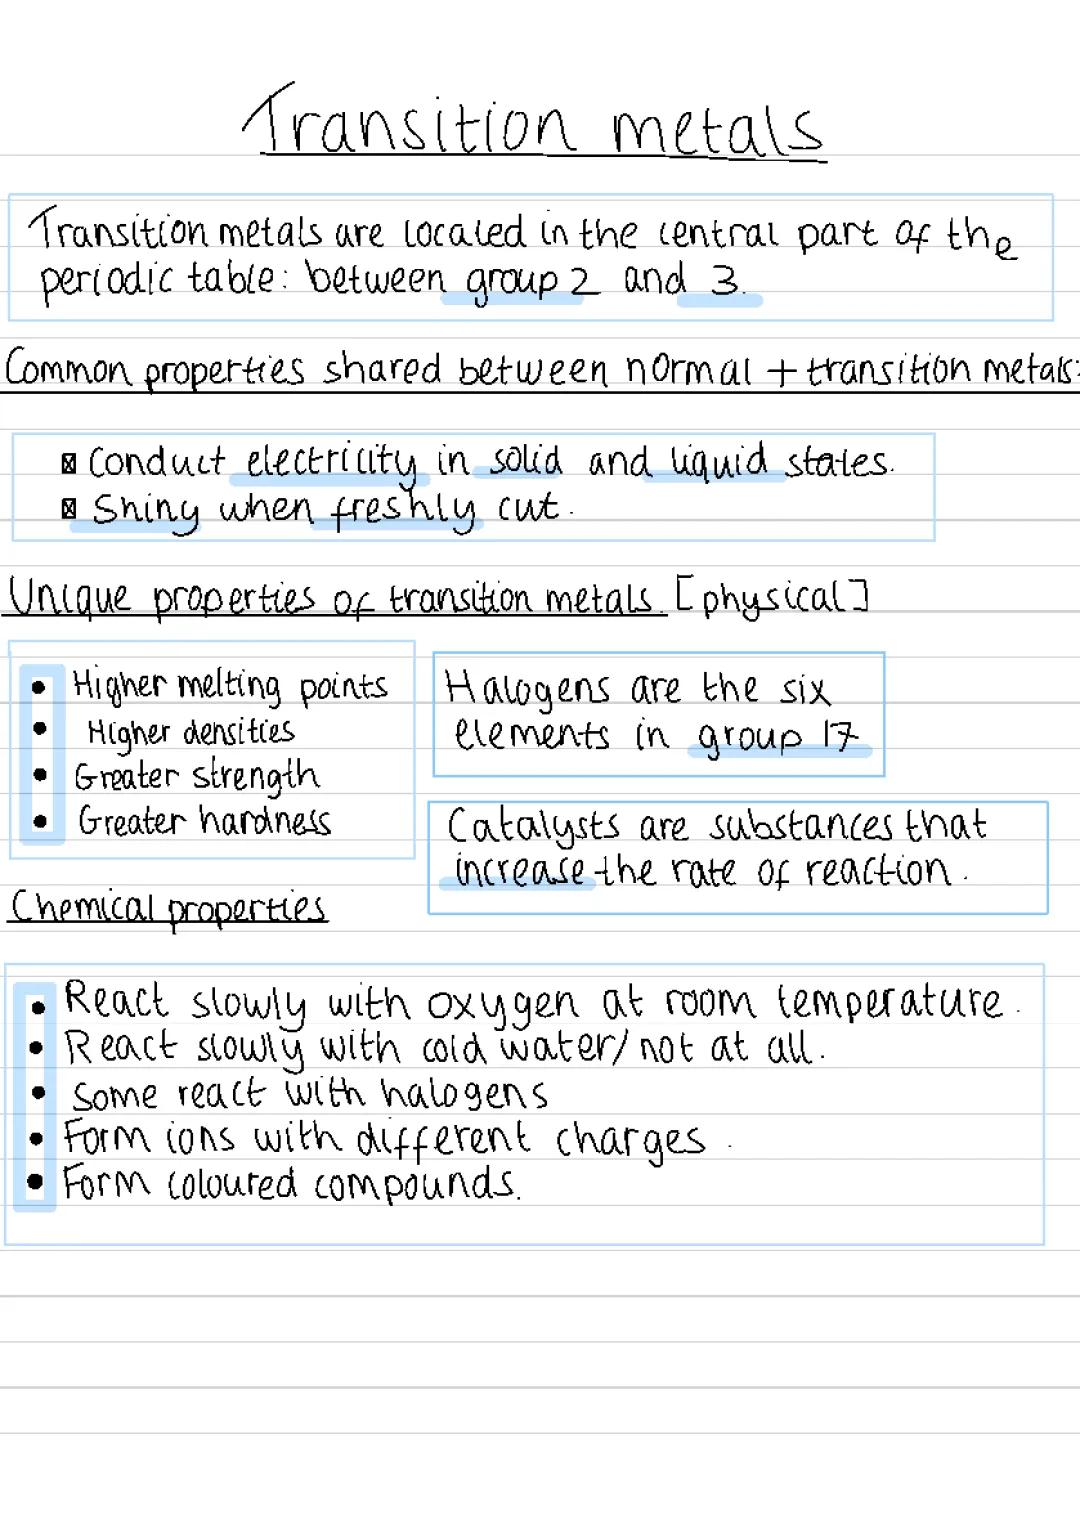 Transition metals
Transition metals are located in the central part of the
periodic table: between group 2 and 3.
Common properties shared between normal + transition metals:
☒ Conduct electricity in solid and liquid states.
☒ Shiny when freshly cut.
Unique properties of transition metals. [physical]
• Higher melting points
• Higher densities
• Greater strength
• Greater hardness
Halogens are the six
elements in group 17
Catalysts are substances that
increase the rate of reaction.
Chemical properties
• React slowly with oxygen at room temperature.
• React slowly with cold water/not at all.
• Some react with halogens
• Form ions with different charges.
• Form coloured compounds.